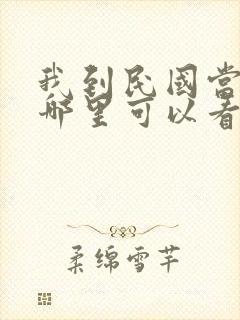 我到民国当
哪里可以看
柔绵雪芊